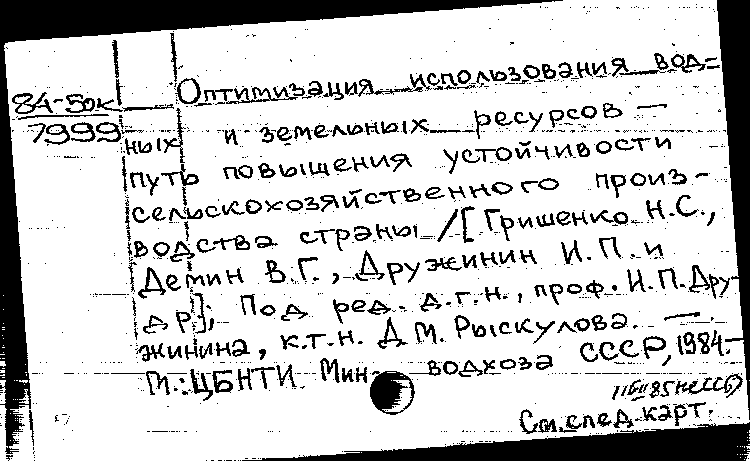 Оптимизация использования вод=
84-5ок
7999
ных и земельных ресурсов —
путь повышения устойчивости
сельскохозяйственного произ-
водства страны /[Гришенко Н.С.,
Демин В.Г., Дружинин И.П. и
др]; Под ред. д.г.н., проф. И.П.Дру-
жинина, к.т.н. Д.М. Рыскулова. —
М.: ЦБНТИ Мин- водхоза СССР, 1984.-
См.след.карт.